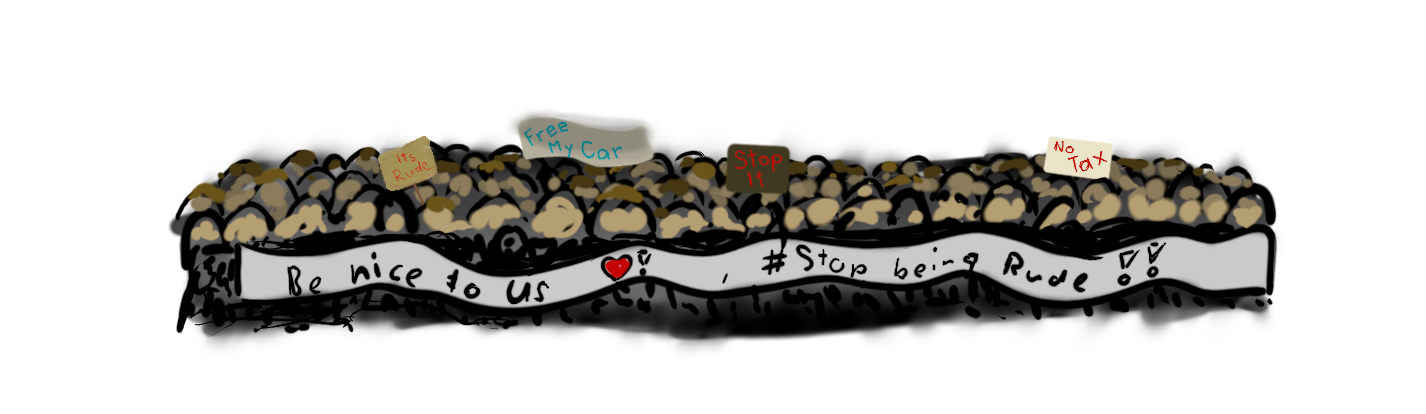 ITs
Rude
Free
My Car
Stop
It
No
Tax
Be nice to us ❤! , #Stop being Rude !!